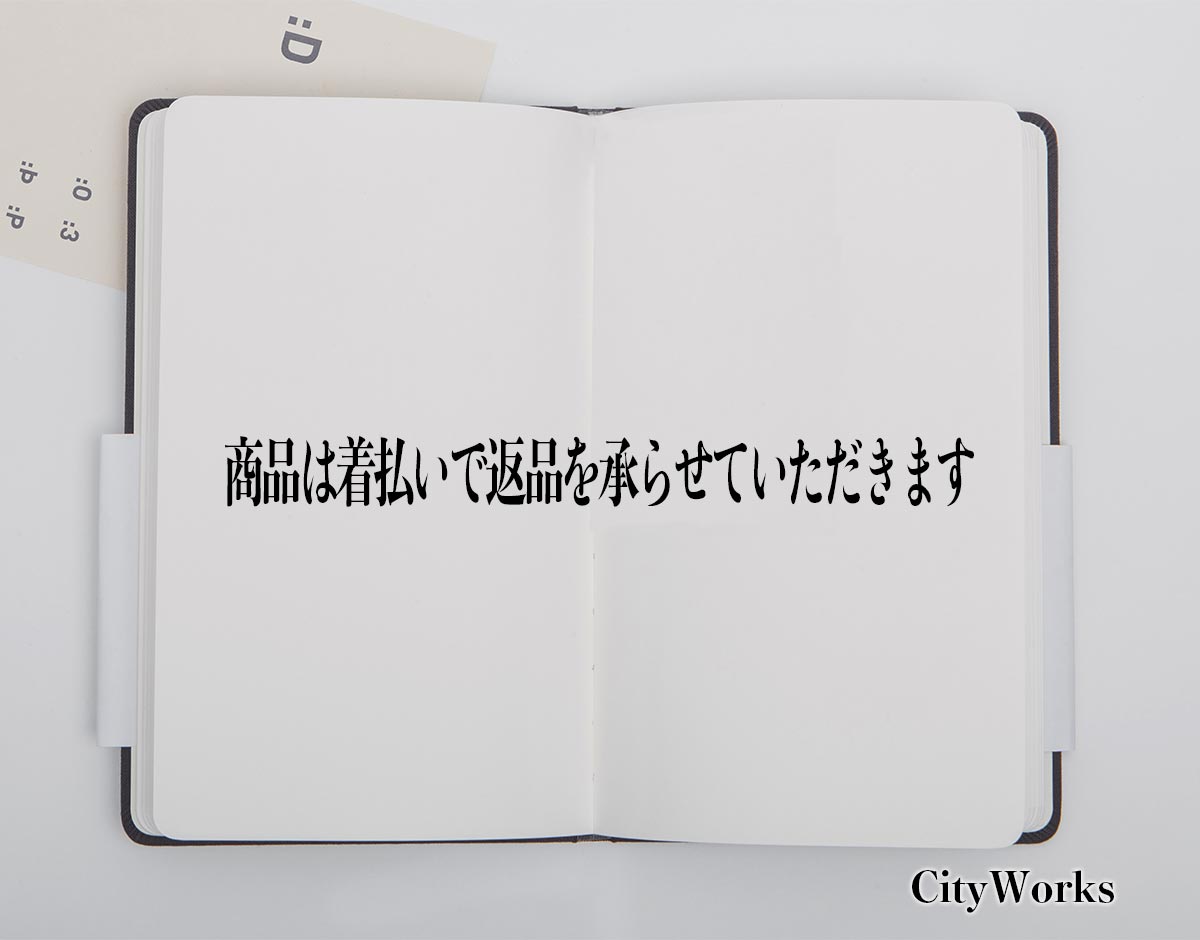 :D
:P
:O
:P
:3
商品は着払いで返品を承らせていただきます
CityWorks